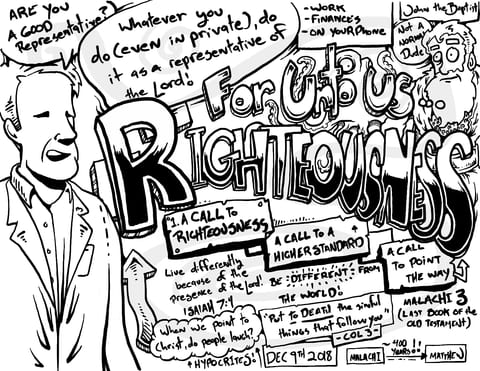 ARE YOU
A GOOD
Representative?
Whatever you
do (even in private), do
it as a representative of
the Lord!
- WORK
- FINANCES
- ON YOUR PHONE
John the Baptist
Not a
Normal
Dude
For Unto Us
RIGHTEOUSNESS
1. A CALL TO
RIGHTEOUSNESS
A CALL TO A
HIGHER STANDARD
A CALL
TO POINT
THE WAY
Live differently
because of the
presence of the Lord!
ISAIAH 7:9
BE DIFFERENT FROM
THE WORLD!
"Put to DEATH the sinful
things that follow you"
- COL 3 -
MALACHI 3
(LAST BOOK OF THE
OLD TESTAMENT)
When we point to
Christ, do people laugh?
HYPOCRITES
DEC 9TH 2018
MALACHI
~400
YEARS
MATTHEW